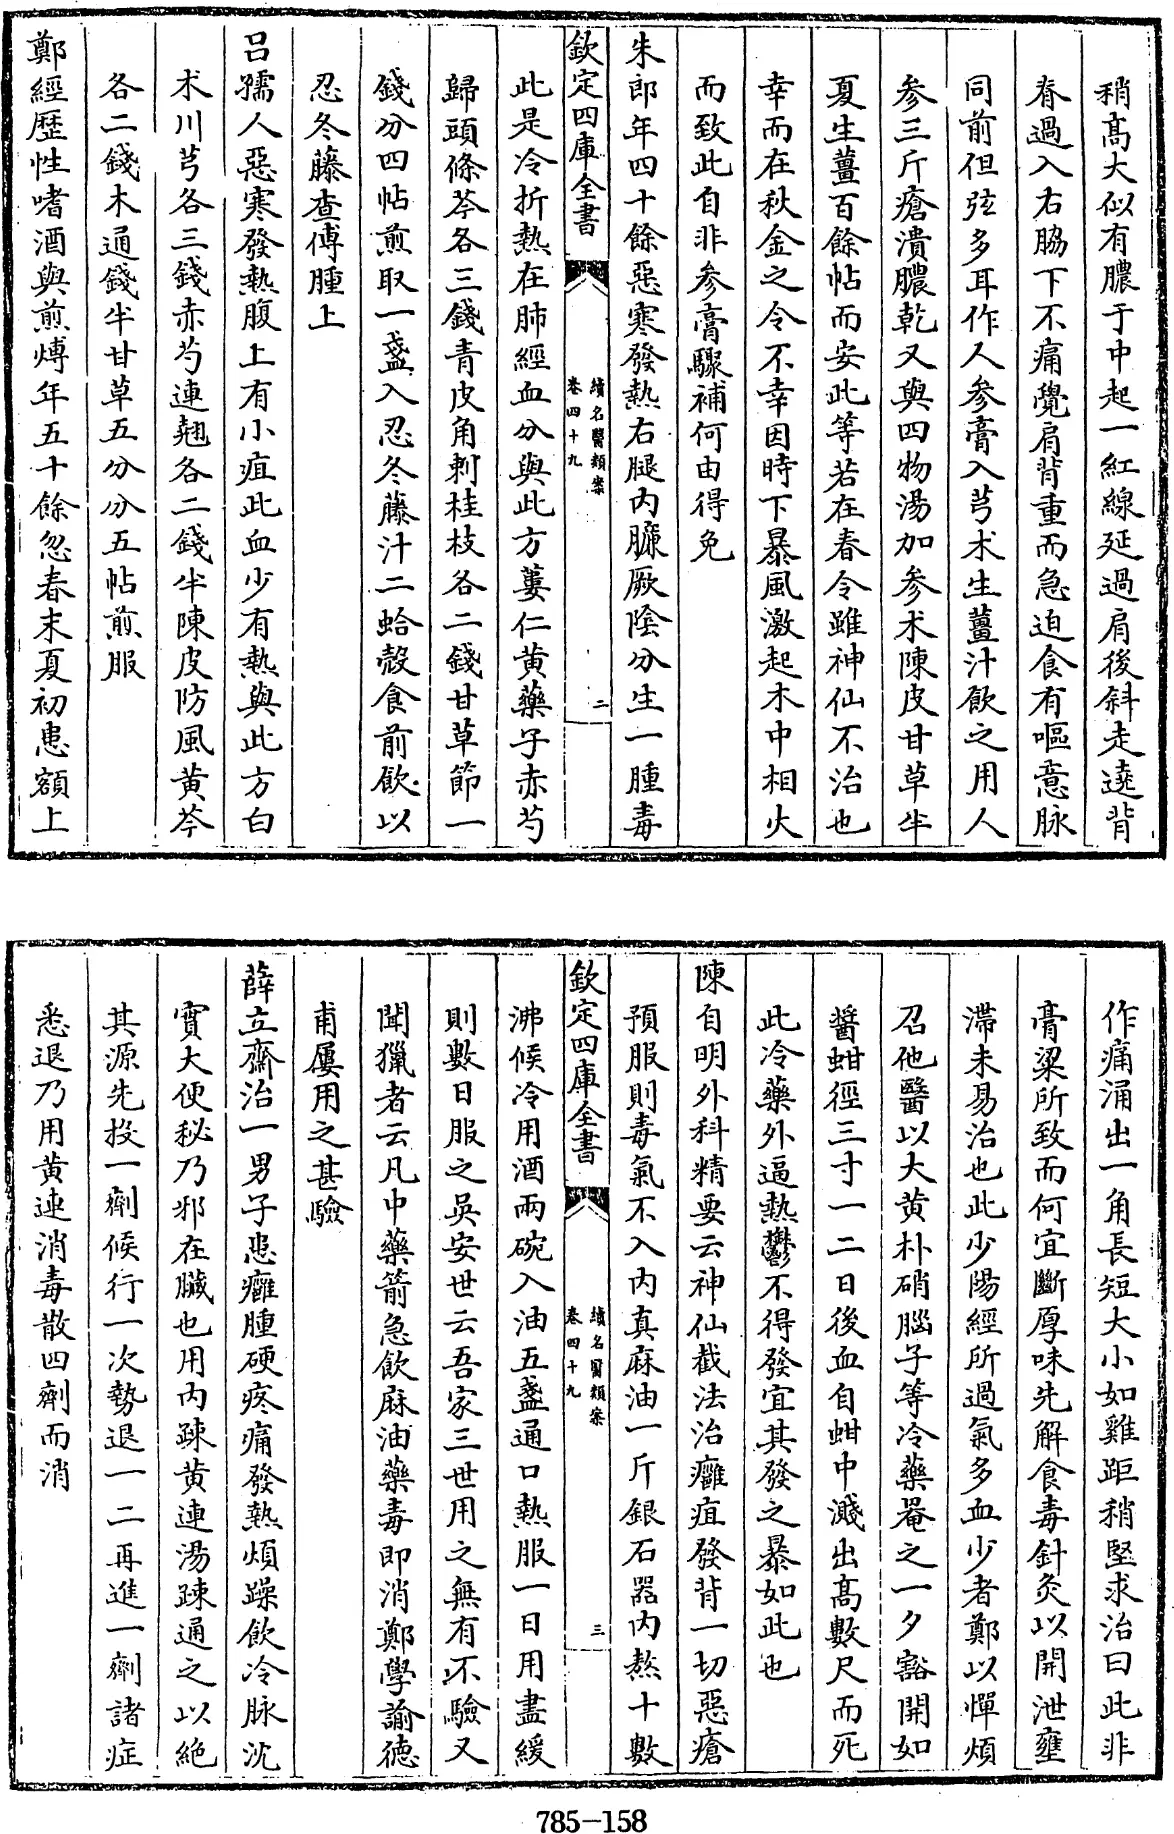 稍高大似有膿于中起一紅線延過肩後斜走遶背
脊過入右脇下不痛覺肩背重而急迫食有嘔意脉
同前但弦多耳作人参膏入芎术生薑汁飲之用人
参三斤瘡潰膿乾又與四物湯加参术陳皮甘草半
夏生薑百餘帖而安此等若在春令雖神仙不治也
幸而在秋金之令不幸因時下暴風激起木中相火
而致此自非参膏驟補何由得免
朱郎年四十餘惡寒發熱右腿内臁厥隂分生一腫毒
欽定四庫全書
續名醫類案
卷四十九
二
此是冷折熱在肺經血分與此方蔞仁黄藥子赤芍
歸頭條芩各三錢青皮角刺桂枝各二錢甘草節一
錢分四帖煎取一盞入忍冬藤汁二蛤殻食前飲以
忍冬藤查傅腫上
吕孺人惡寒發熱腹上有小疽此血少有熱與此方白
术川芎各三錢赤芍連翹各二錢半陳皮防風黄芩
各二錢木通錢半甘草五分分五帖煎服
鄭經歴性嗜酒與煎煿年五十餘忽春末夏初患額上
作痛涌出一角長短大小如雞距稍堅求治曰此非
膏粱所致而何宜斷厚味先解食毒針灸以開泄壅
滯未易治也此少陽經所過氣多血少者鄭以憚煩
召他醫以大黄朴硝腦子等冷藥罨之一夕豁開如
醬蚶徑三寸一二日後血自蚶中濺出高數尺而死
此冷藥外逼熱鬱不得發宜其發之暴如此也
陳自明外科精要云神仙截法治癰疽發背一切惡瘡
預服則毒氣不入内真麻油一斤銀石器内熬十數
欽定四庫全書
續名醫類案
卷四十九
三
沸候冷用酒兩碗入油五盞通口熱服一日用盡緩
則數日服之吳安世云吾家三世用之無有不驗又
聞獵者云凡中藥箭急飲麻油藥毒即消鄭學諭德
甫屢用之甚驗
薛立齋治一男子患癰腫硬疼痛發熱煩躁飲冷脉沈
實大便秘乃邪在臟也用内踈黄連湯踈通之以絶
其源先投一劑候行一次勢退一二再進一劑諸症
悉退乃用黄連消毒散四劑而消
785-158